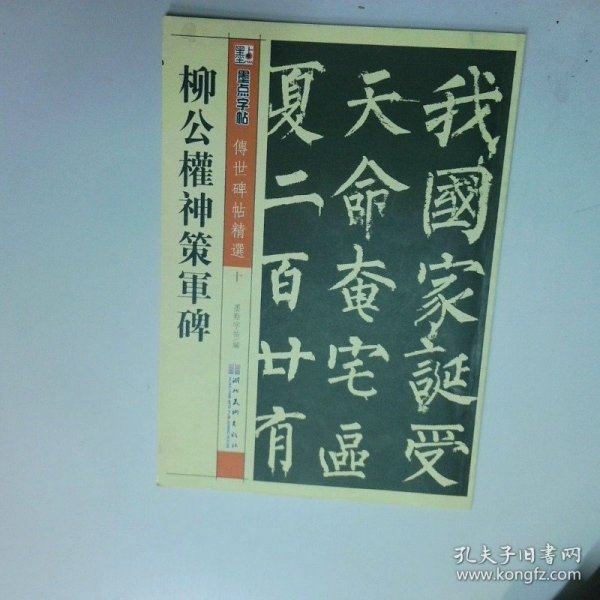 柳公權神策軍碑
墨点字帖
傳世碑帖精選
十
墨點字帖 編
湖北美術出版社
我國家誕受
天命奄宅區
夏二百廿有
孔夫子旧书网
www.kongfz.com